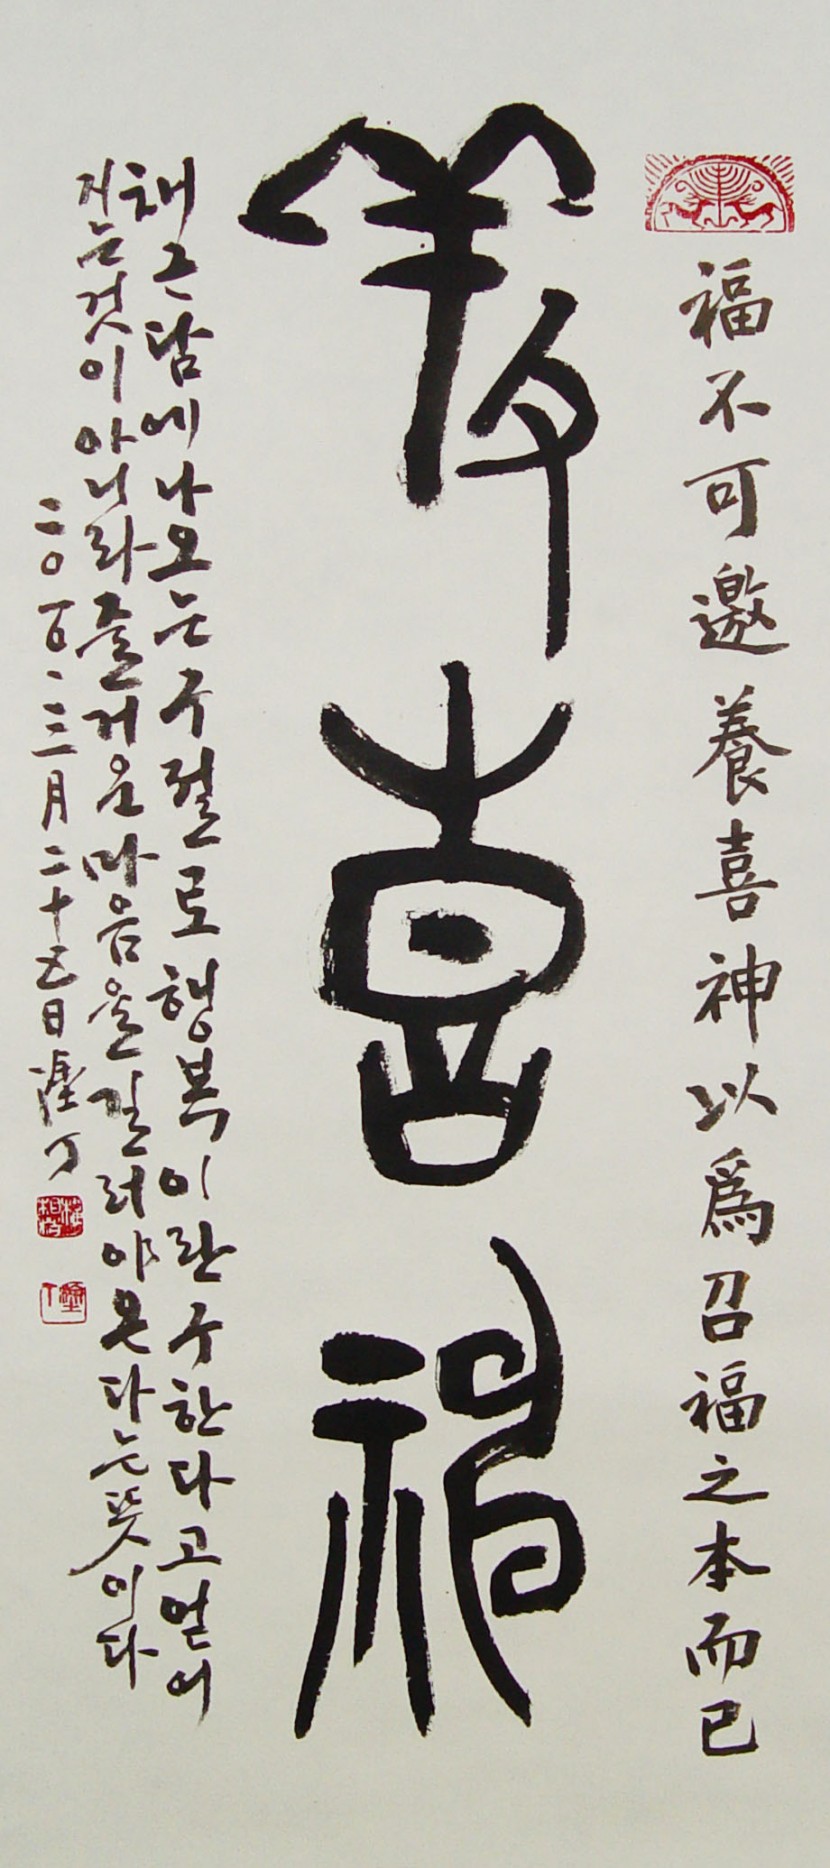 福不可邀養喜神以爲召福之本而已
養喜神
채근담에나오는구절로행복이란구한다고얻어
지는것이아니라즐거운마음을길러야온다는뜻이다
三月二十五日